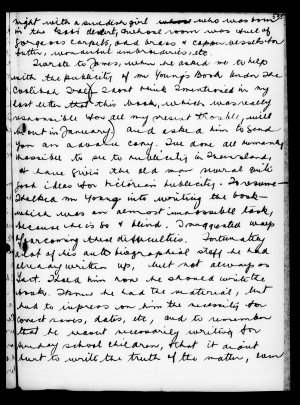 night with a swedish girl who was born
in the Gobi desert, the whole room was full of
Gorgeous carpets, old brass & copper vessels for
butter, wonderful embroideries, etc.
I wrote to Jones, when he asked me to help
with the publicity of Mr Young's Book Under The
Coolibah Tree (I don't think I mentioned in my
last letter that this book, which was really
responsible for all my present trouble, will
be out in January) and asked him to send
you an advance copy. I've done all humanly
possible to see to publicity in Queensland,
& have given the old man several quite
good ideas for Victorian publicity. To resume—
I talked Mr Young into writing the book—
which was an almost impossible task,
because he is 80 & blind. I suggested ways
of overcoming these difficulties. Fortunately
most of his autobiographical stuff he had
already written up, but not always as
fact. I told him how he should write the
book. I knew he had the material, but
had to impress on him the necessity for
correct names, dates, etc, and to remember
that he wasn't necessarily writing for
Sunday school children, & that it didn't
hurt to write the truth of the matter, even